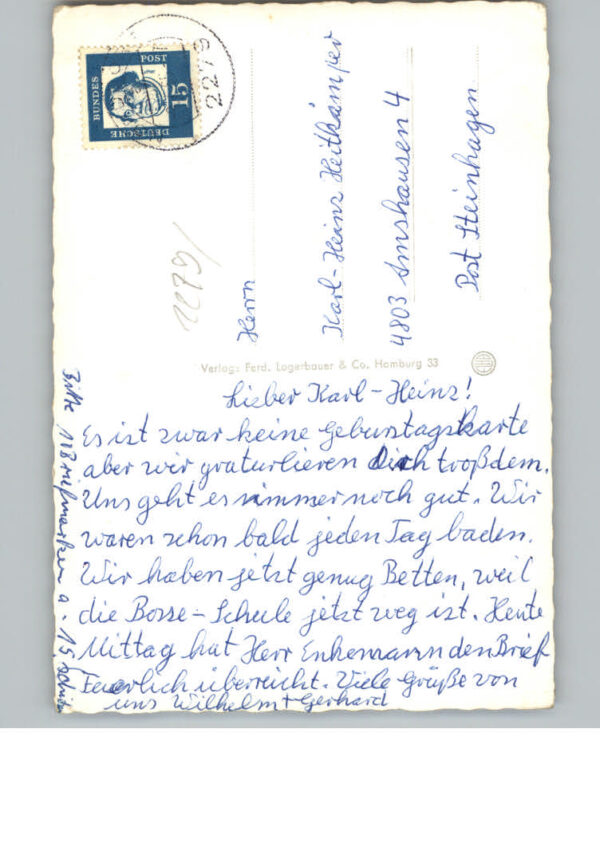 DEUTSCHE
BUNDES
POST
15
2279
6222/
Herrn
Karl-Heinz Heitkämper
4803 Amshausen 4
Post Steinhagen
Verlag: Ferd. Lagerbauer & Co. Hamburg 33
Lieber Karl-Heinz!
Es ist zwar keine Geburstagskarte
aber wir graturlieren Dich troßdem.
Uns geht es immer noch gut. Wir
waren schon bald jeden Tag baden.
Wir haben jetzt genug Betten, weil
die Bosse-Schule jetzt weg ist. Heute
Mittag hat Herr Enkemann den Brief
Feuerlich überreicht. Viele Grüße von
uns Wilhelm + Gerhard
Bitte 11 Briefmarken a. 15 schicken